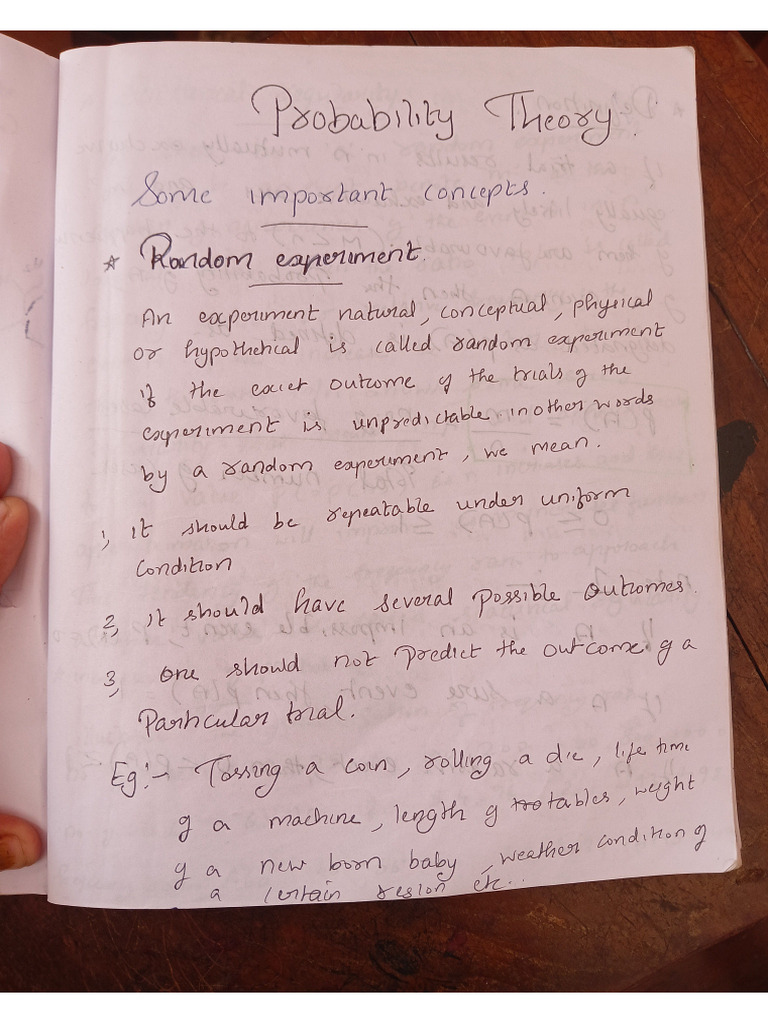 Probability Theory.
Some important concepts.
* Random experiment.
An experiment natural, conceptual, physical
or hypothetical is called random experiment
if the exact outcome of the trials of the
experiment is unpredictable. in other words
by a random experiment, we mean.
1, it should be repeatable under uniform
condition
2, it should have several possible outcomes.
3, one should not predict the outcome of a
particular trial.
Eg:- Tossing a coin, rolling a die, life time
of a machine, length of tables, weight
of a new born baby, weather condition of
a certain resion etc..